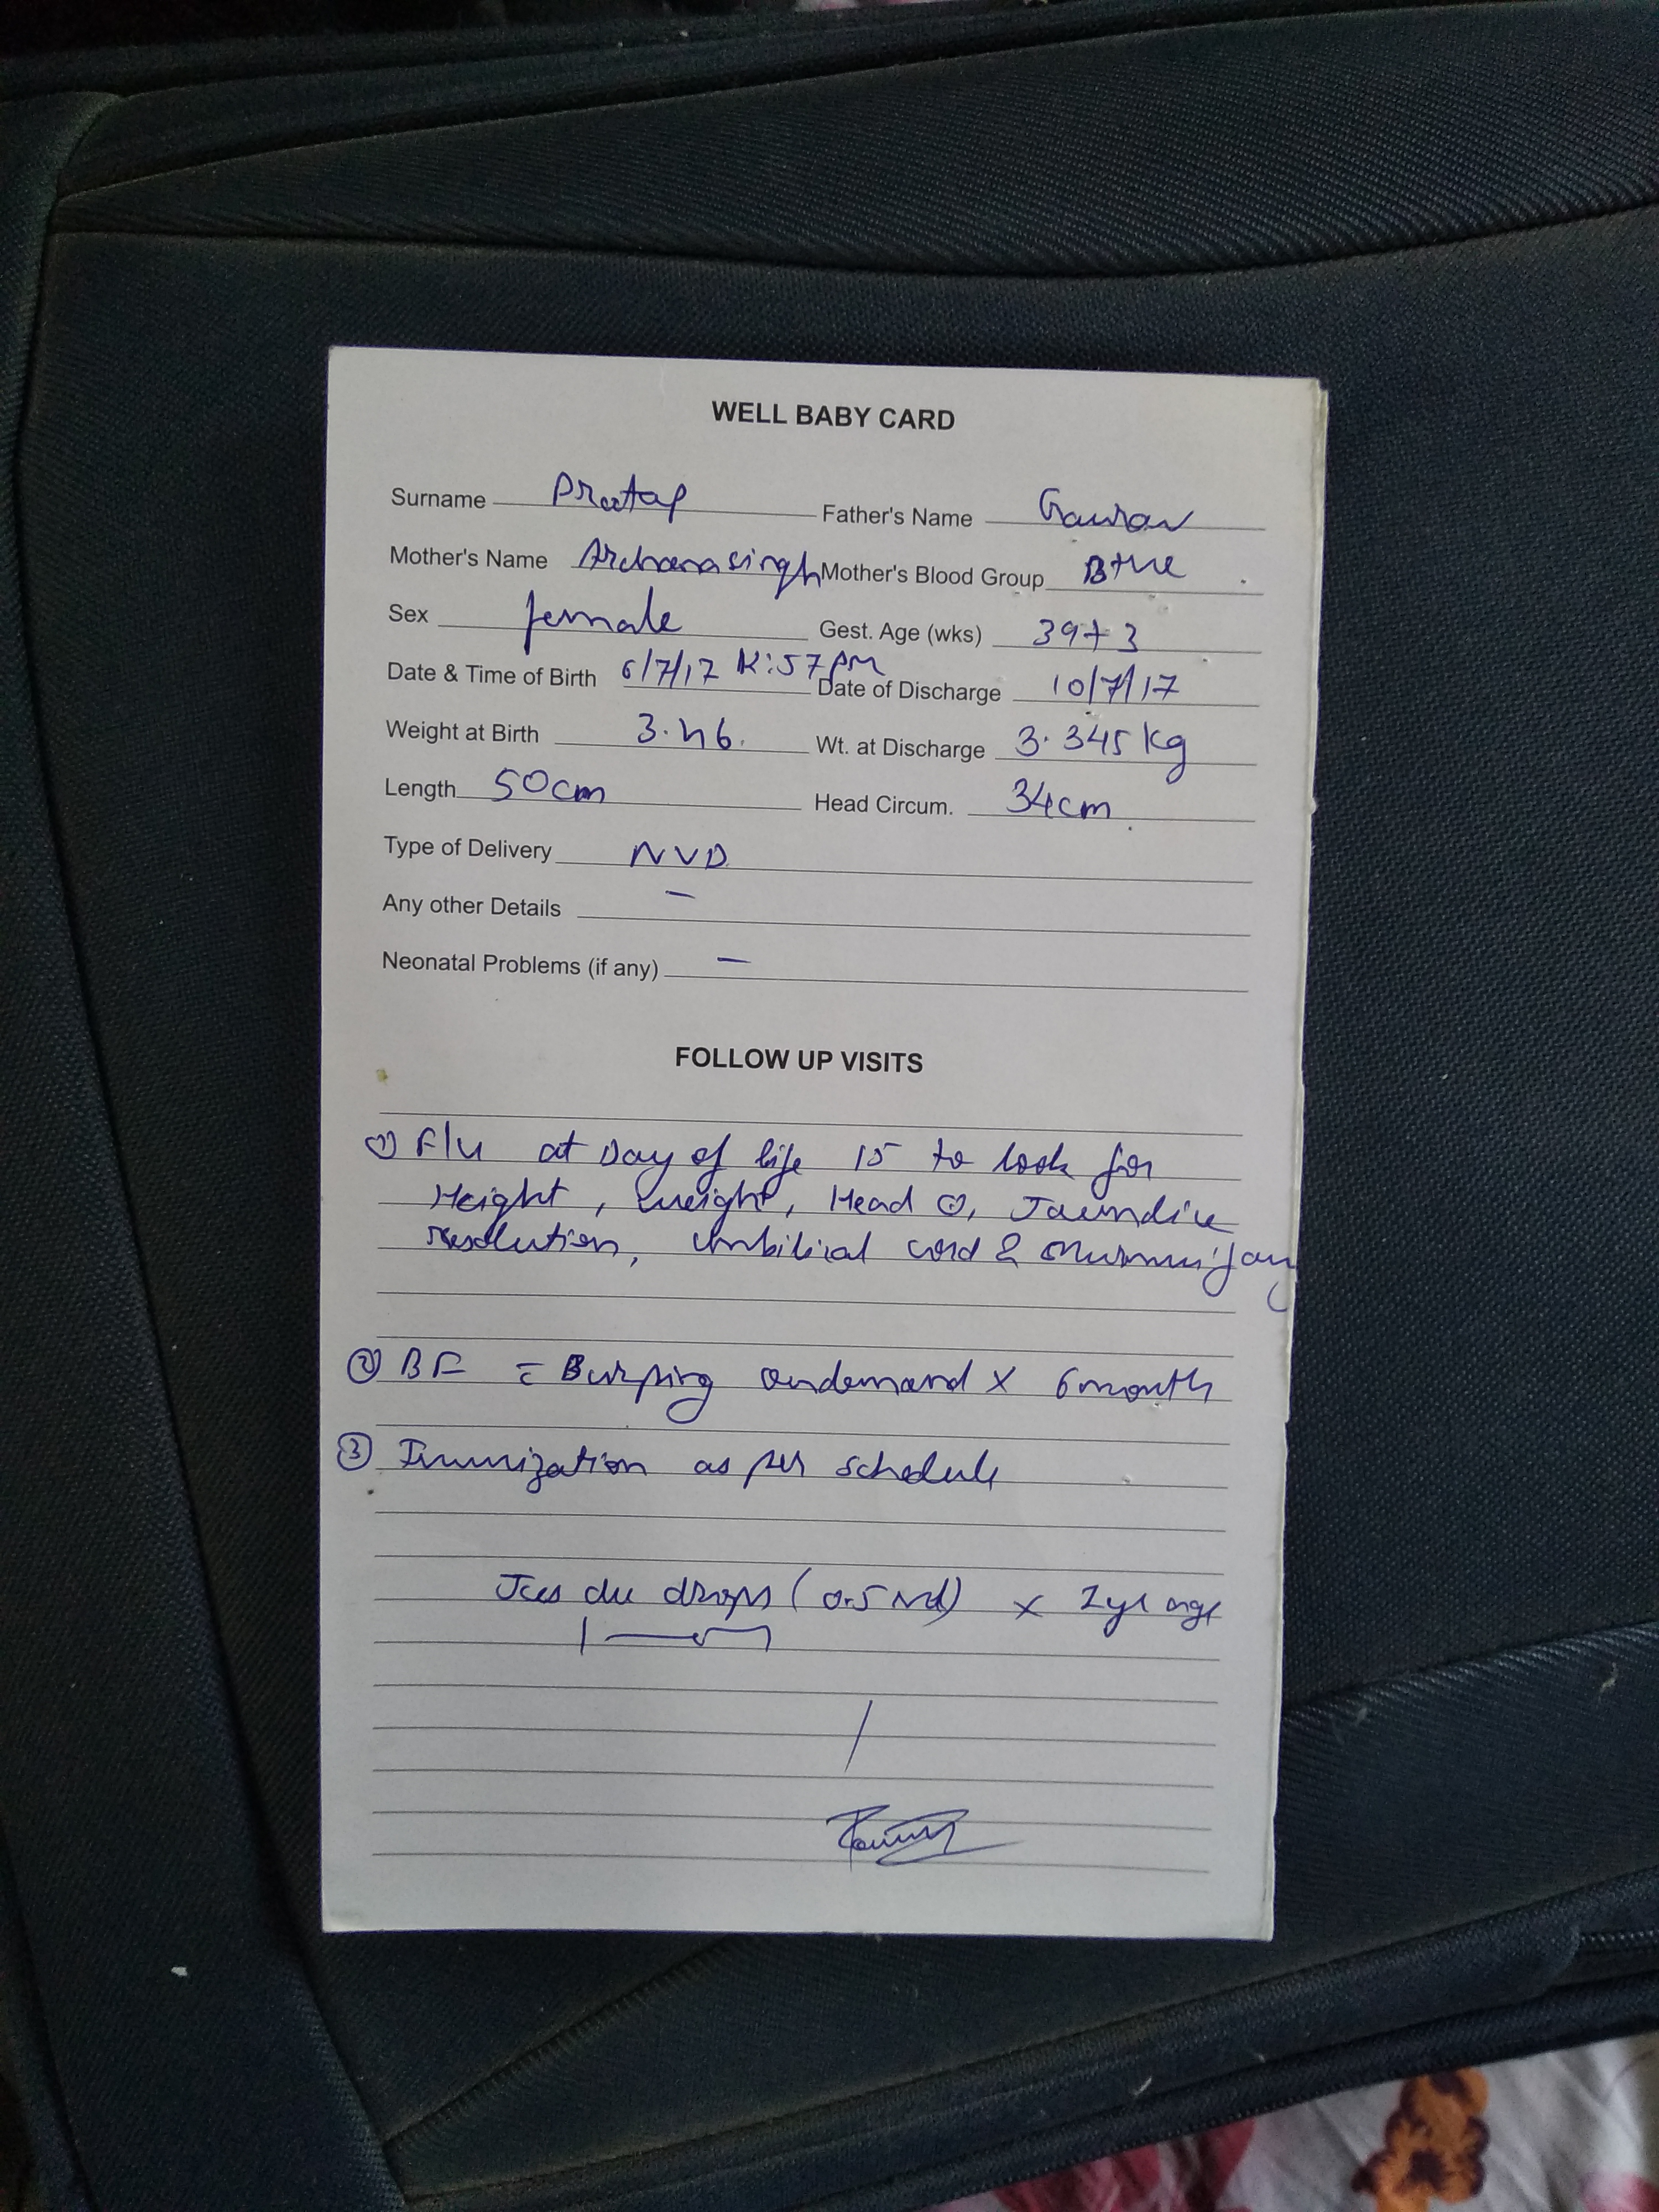 WELL BABY CARD
Surname Pratap Father's Name Gaurav
Mother's Name Archana singh Mother's Blood Group B+ve
Sex female Gest. Age (wks) 39+3
Date & Time of Birth 6/7/17 12:57pm Date of Discharge 10/7/17
Weight at Birth Wt. at Discharge 3.345 kg
Length 50cm Head Circum. 34cm
Type of Delivery NVD
Any other Details –
Neonatal Problems (if any) –
FOLLOW UP VISITS
① F/u at Day of life 15 to look for
Height, weight, Head c, Jaundice
resolution, Umbilical cord & any
② BF Burping ondemand x 6 month
③ Immunization as per schedule
drops (0.5 ml) x age